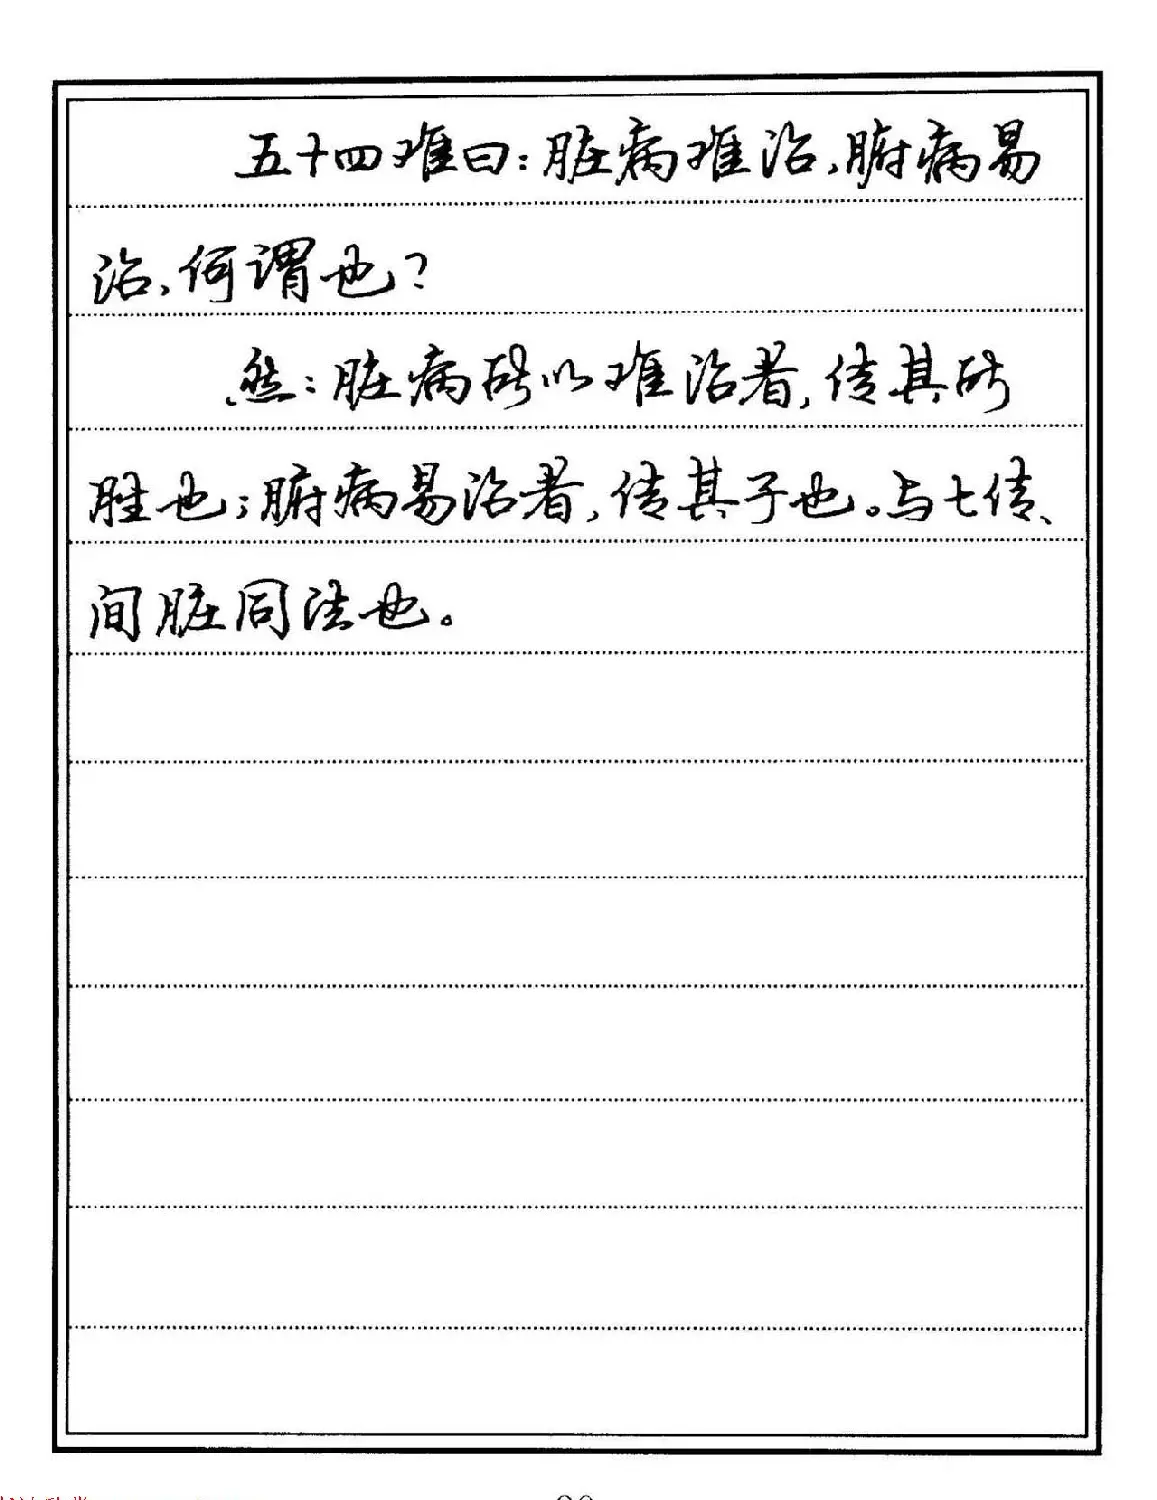 五十四难曰：脏病难治，腑病易
治，何谓也？
然：脏病所以难治者，传其所
胜也；腑病易治者，传其子也。与七传、
间脏同法也。